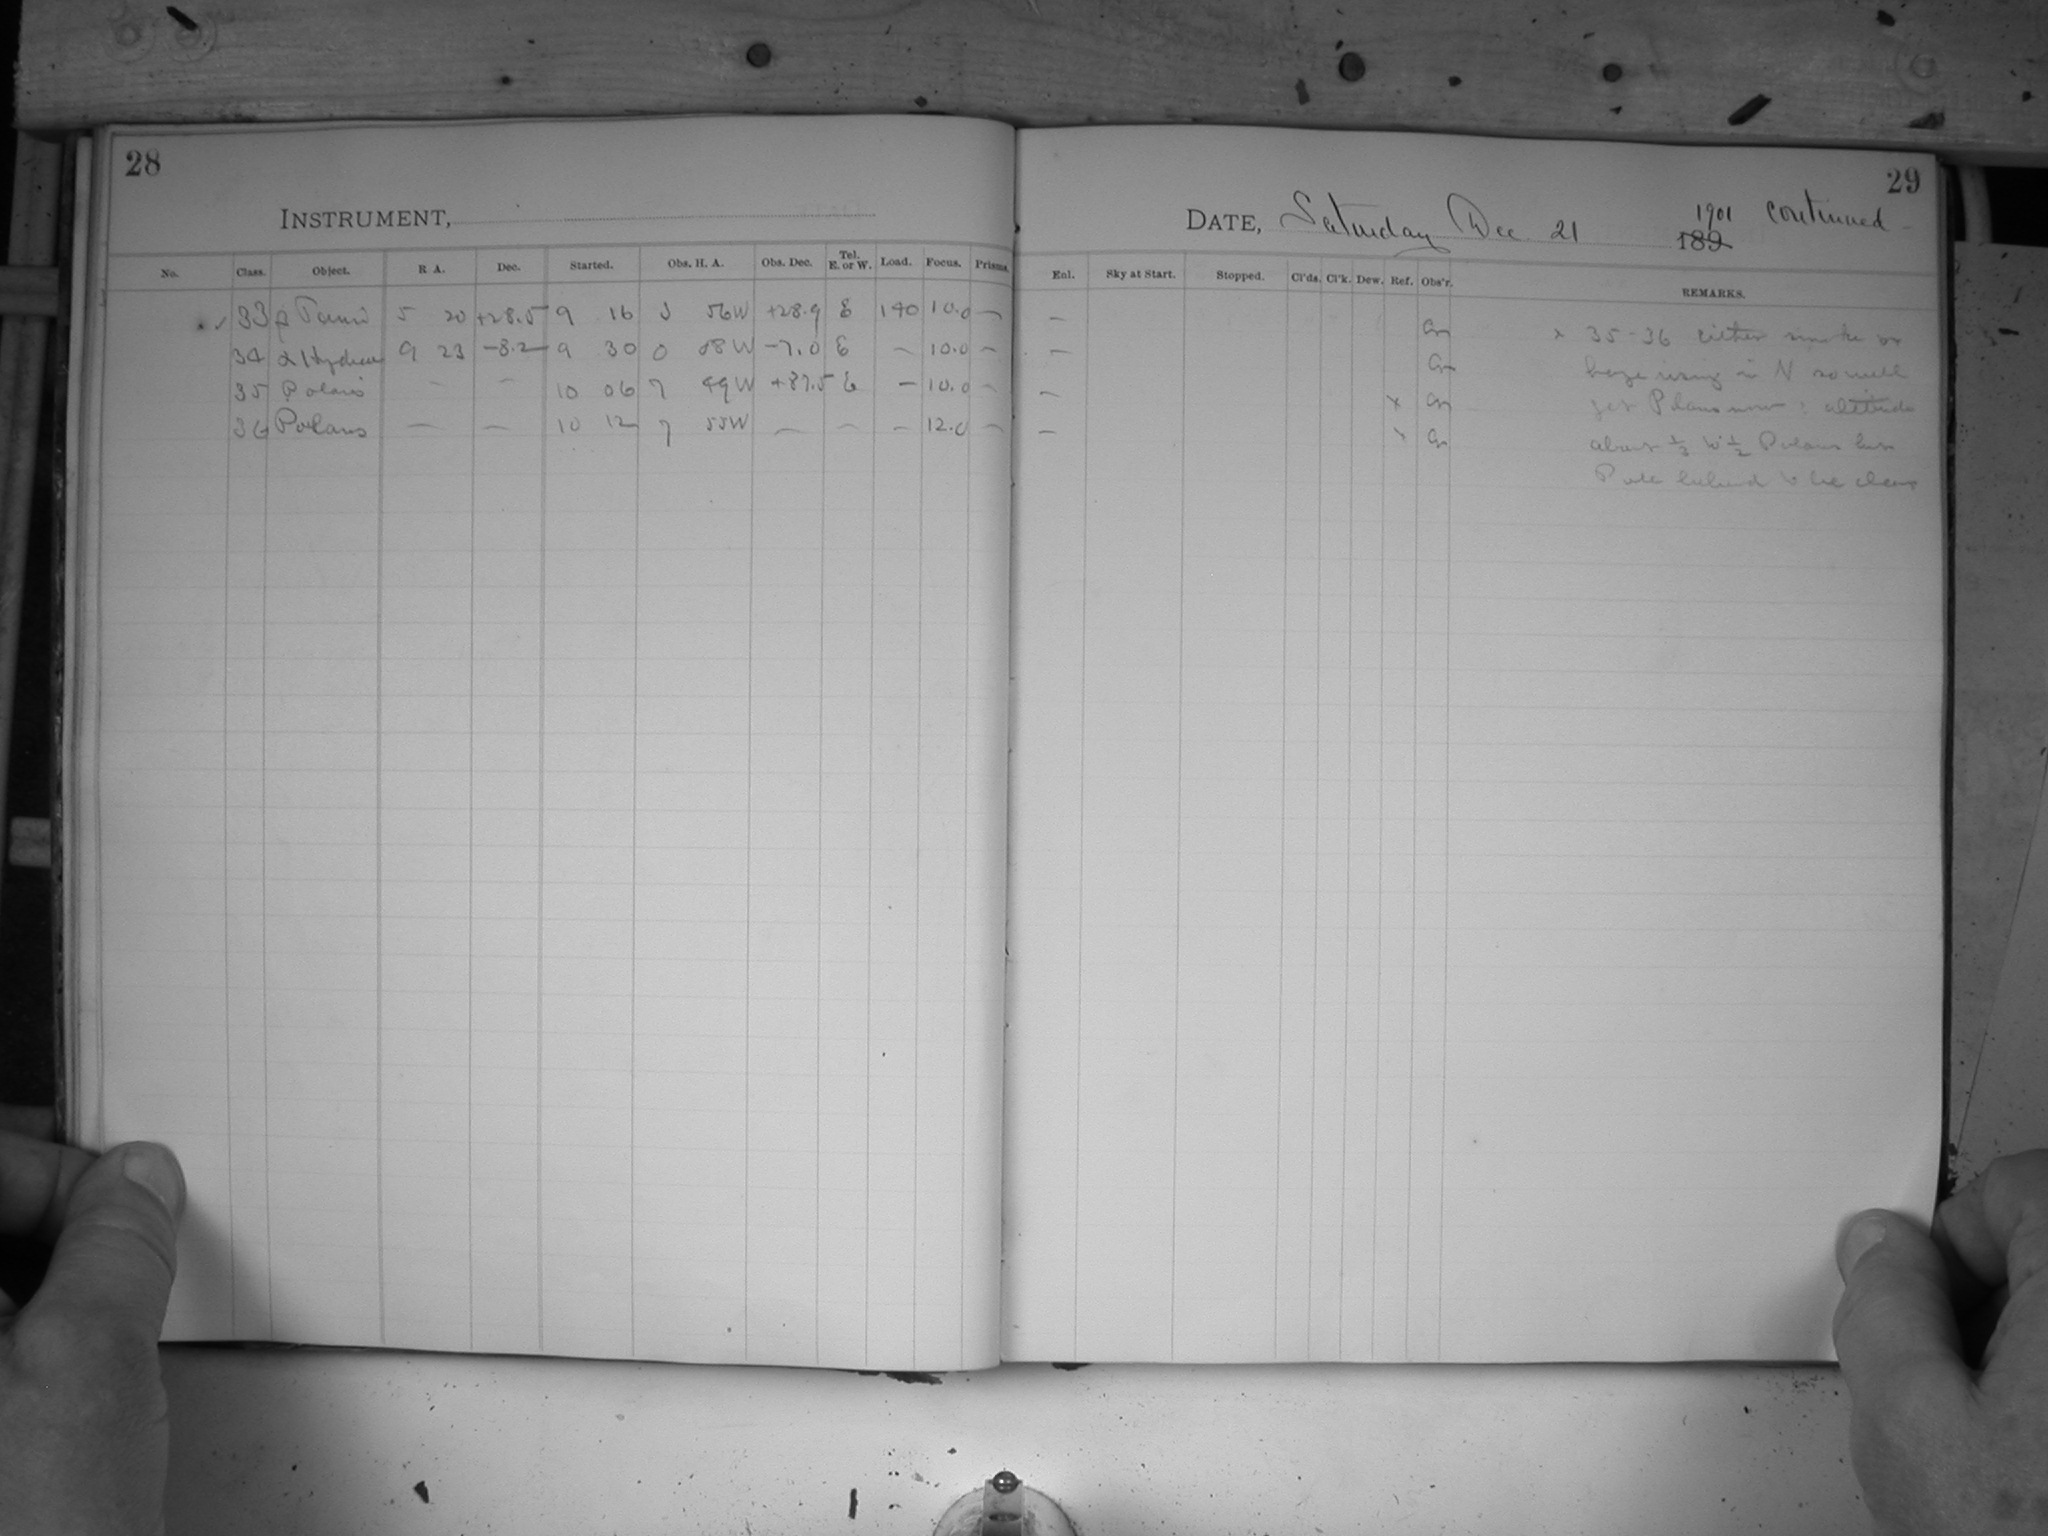 28
INSTRUMENT,
No. Class. Object. R. A. Dec. Started. Obs. H. A. Obs. Dec. Tel. E. or W. Load. Focus. Prisms.
33 β Tauri 5 20 +28.5 9 16 3 56W +28.9 E 140 10.0 —
34 α Hydrae 9 23 -8.2 9 30 0 08W -7.0 E — 10.0 —
35 Polaris — — 10 06 7 49W +87.5 E — 10.0 —
36 Polaris — — 10 12 7 55W — — — 12.0 —
29
DATE, Saturday Dec 21 1901 189 continued
Enl. Sky at Start. Stopped. Cl'ds. Cl'k. Dew. Ref. Obs'r. REMARKS.
— x 35-36 either smoke or
— haze rising in N so will
— x altitude
— x about 1/3 to 1/2 Polaris
Pole behind to be clear